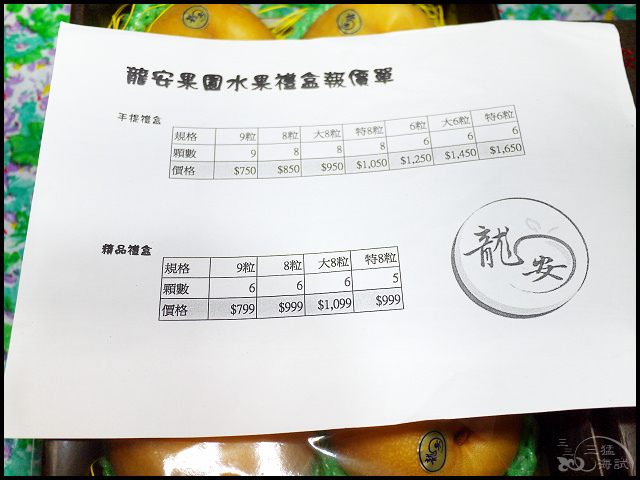 龍安果園水果禮盒報價單
手提禮盒
規格 9粒 8粒 大8粒 特8粒 6粒 大6粒 特6粒
顆數 9 8 8 8 6 6 6
價格 $750 $850 $950 $1,050 $1,250 $1,450 $1,650
精品禮盒
規格 9粒 8粒 大8粒 特8粒
顆數 6 6 6 5
價格 $799 $999 $1,099 $999
龍安
龍安
三猛
海試